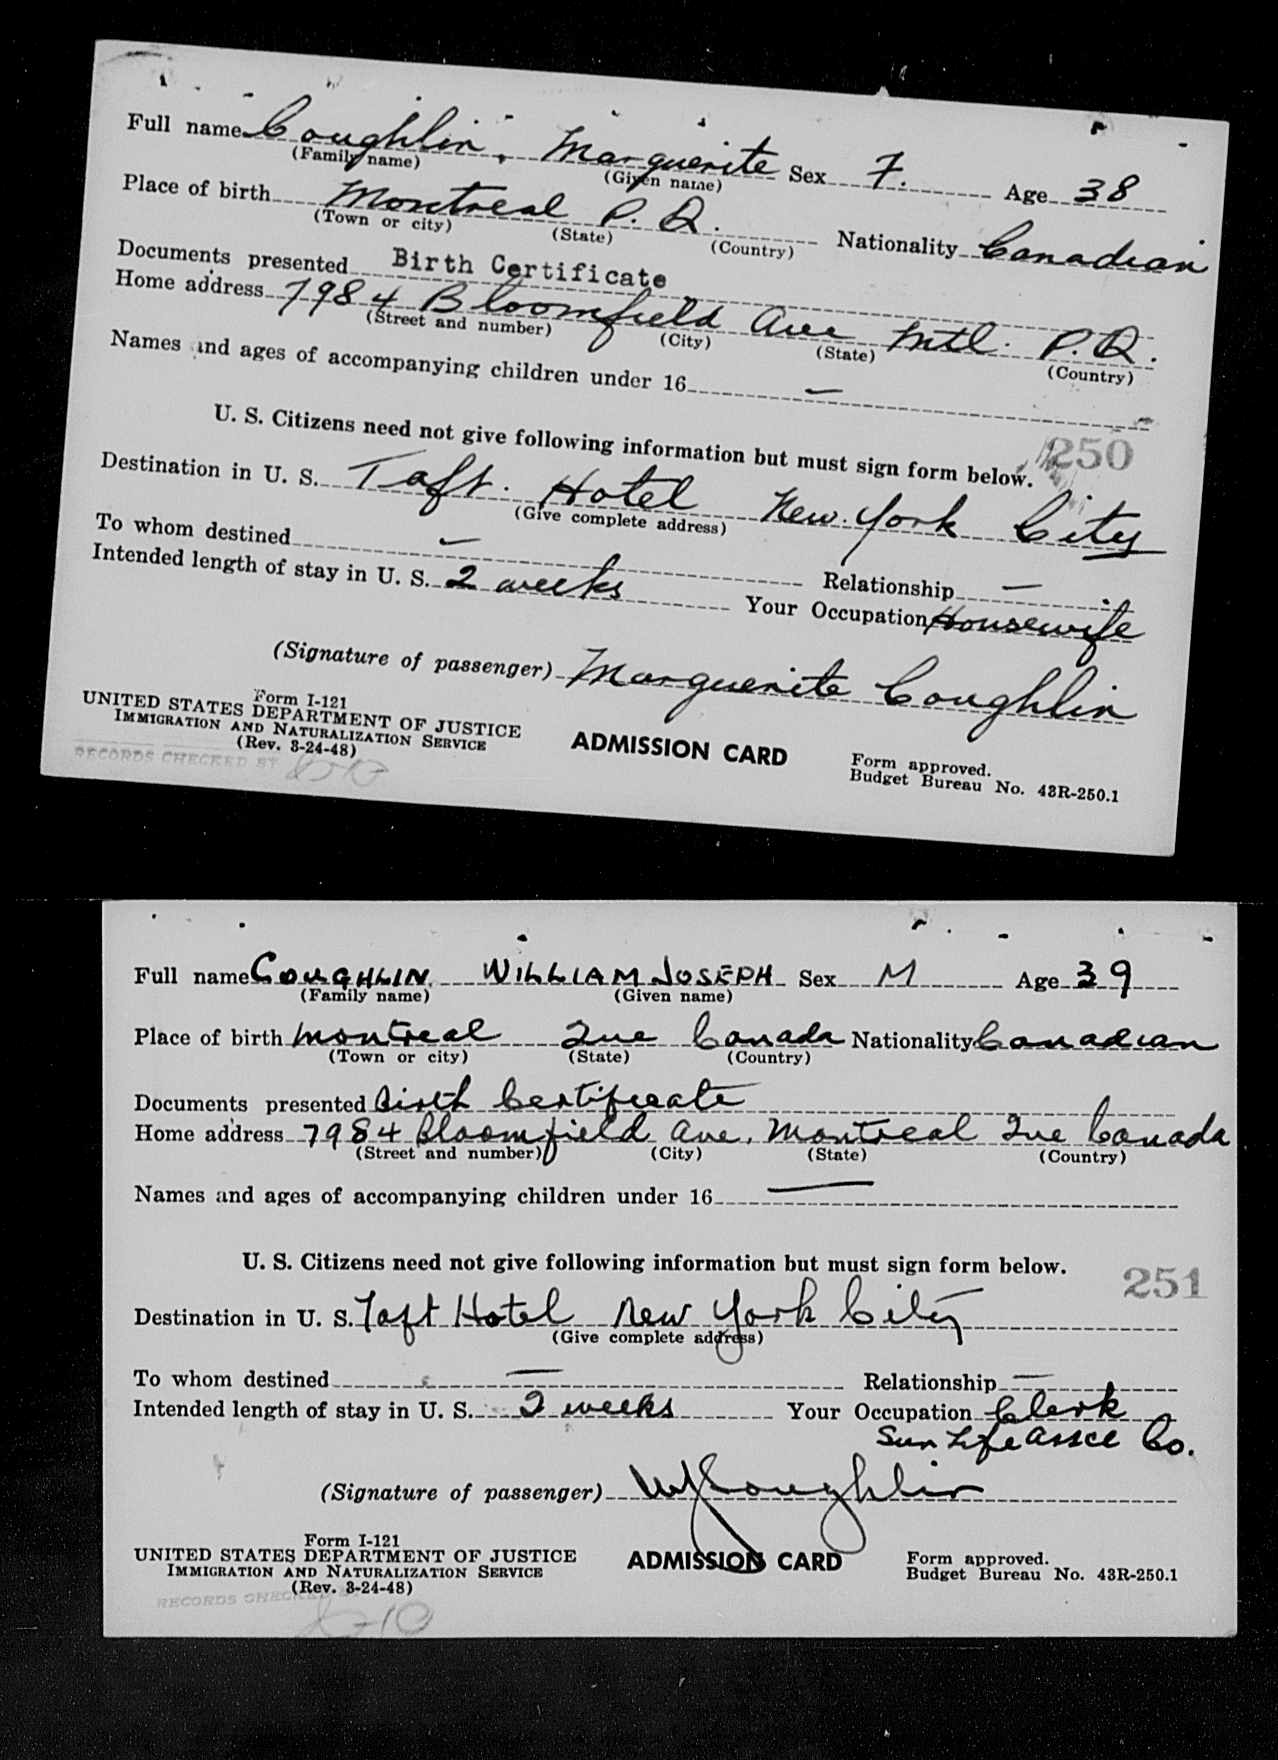 Full name Coughlin, Marguerite Sex F. Age 38
(Family name) (Given name)
Place of birth Montreal P. Q. Nationality Canadian
(Town or city) (State) (Country)
Documents presented Birth Certificate
Home address 7984 Bloomfield Ave Mtl. P.Q.
(Street and number) (City) (State) (Country)
Names and ages of accompanying children under 16 —
U. S. Citizens need not give following information but must sign form below.
250
Destination in U. S. Taft. Hotel New York City
(Give complete address)
To whom destined — Relationship —
Intended length of stay in U. S. 2 weeks Your Occupation Housewife
(Signature of passenger) Marguerite Coughlin
Form I-121
UNITED STATES DEPARTMENT OF JUSTICE
IMMIGRATION AND NATURALIZATION SERVICE
(Rev. 3-24-48)
ADMISSION CARD
Form approved.
Budget Bureau No. 43R-250.1
RECORDS CHECKED BY
Full name COUGHLIN, WILLIAM JOSEPH Sex M Age 39
(Family name) (Given name)
Place of birth Montreal Que Canada Nationality Canadian
(Town or city) (State) (Country)
Documents presented Birth Certificate
Home address 7984 Bloomfield Ave, Montreal Que Canada
(Street and number) (City) (State) (Country)
Names and ages of accompanying children under 16 —
U. S. Citizens need not give following information but must sign form below.
251
Destination in U. S. Taft Hotel New York City
(Give complete address)
To whom destined — Relationship —
Intended length of stay in U. S. 2 weeks Your Occupation Clerk
Sun Life Assce Co.
(Signature of passenger) WJCoughlin
Form I-121
UNITED STATES DEPARTMENT OF JUSTICE
IMMIGRATION AND NATURALIZATION SERVICE
(Rev. 3-24-48)
ADMISSION CARD
Form approved.
Budget Bureau No. 43R-250.1
RECORDS CHECKED